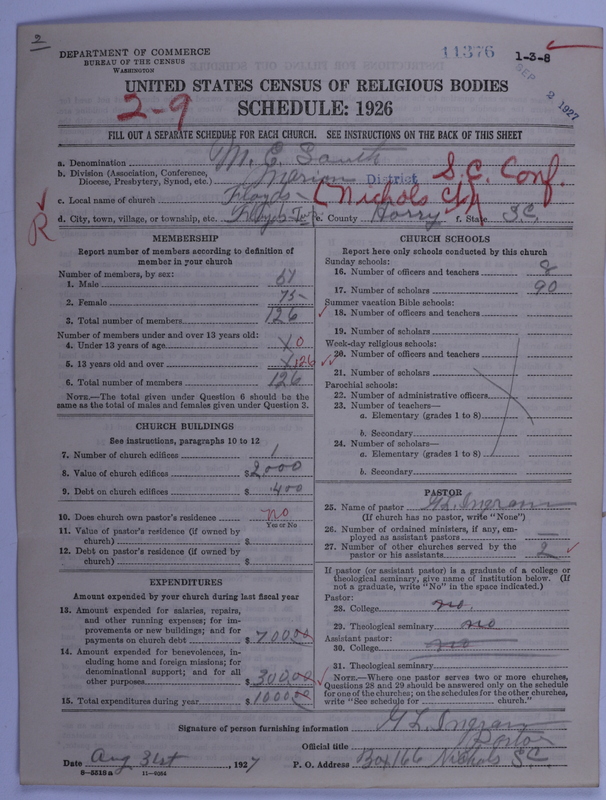 2
DEPARTMENT OF COMMERCE
BUREAU OF THE CENSUS
WASHINGTON
11376
1-3-8
SEP 2 1927
UNITED STATES CENSUS OF RELIGIOUS BODIES
2-9
SCHEDULE: 1926
FILL OUT A SEPARATE SCHEDULE FOR EACH CHURCH. SEE INSTRUCTIONS ON THE BACK OF THIS SHEET
a. Denomination M. E. South
b. Division (Association, Conference, Diocese, Presbytery, Synod, etc.) Marion District S.C. Conf.
c. Local name of church Floyds (Nichols Chg)
R
d. City, town, village, or township, etc. Floyds Twp e. County Horry f. State S.C.
MEMBERSHIP
Report number of members according to definition of
member in your church
Number of members, by sex:
1. Male 51
2. Female 75
3. Total number of members 126
Number of members under and over 13 years old:
4. Under 13 years of age X 0
5. 13 years old and over X 126
6. Total number of members 126
NOTE.—The total given under Question 6 should be the
same as the total of males and females given under Question 3.
CHURCH BUILDINGS
See instructions, paragraphs 10 to 12
7. Number of church edifices 1
8. Value of church edifices $ 2000
9. Debt on church edifices $ 400
10. Does church own pastor's residence no
Yes or No
11. Value of pastor's residence (if owned by
church) $
12. Debt on pastor's residence (if owned by
church) $
EXPENDITURES
Amount expended by your church during last fiscal year
13. Amount expended for salaries, repairs,
and other running expenses; for im-
provements or new buildings; and for
payments on church debt $ 700.00
14. Amount expended for benevolences, in-
cluding home and foreign missions; for
denominational support; and for all
other purposes $ 300.00
15. Total expenditures during year $ 1000.00
CHURCH SCHOOLS
Report here only schools conducted by this church
Sunday schools:
16. Number of officers and teachers 8
17. Number of scholars 90
Summer vacation Bible schools:
18. Number of officers and teachers
19. Number of scholars
Week-day religious schools:
20. Number of officers and teachers
21. Number of scholars
Parochial schools:
22. Number of administrative officers
23. Number of teachers—
a. Elementary (grades 1 to 8)
b. Secondary
24. Number of scholars—
a. Elementary (grades 1 to 8)
b. Secondary
PASTOR
25. Name of pastor G L Ingram
(If church has no pastor, write "None")
26. Number of ordained ministers, if any, em-
ployed as assistant pastors —
27. Number of other churches served by the
pastor or his assistants 2
If pastor (or assistant pastor) is a graduate of a college or
theological seminary, give name of institution below. (If
not a graduate, write "No" in the space indicated.)
Pastor:
28. College no
29. Theological seminary no
Assistant pastor:
30. College no
31. Theological seminary
NOTE.—Where one pastor serves two or more churches,
Questions 28 and 29 should be answered only on the schedule
for one of the churches; on the schedules for the other churches,
write "See schedule for church."
Signature of person furnishing information G L Ingram
Official title Pastor
Date Aug 31st, 1927 P. O. Address Box 166 Nichols S.C.
8-5318a 11-9264